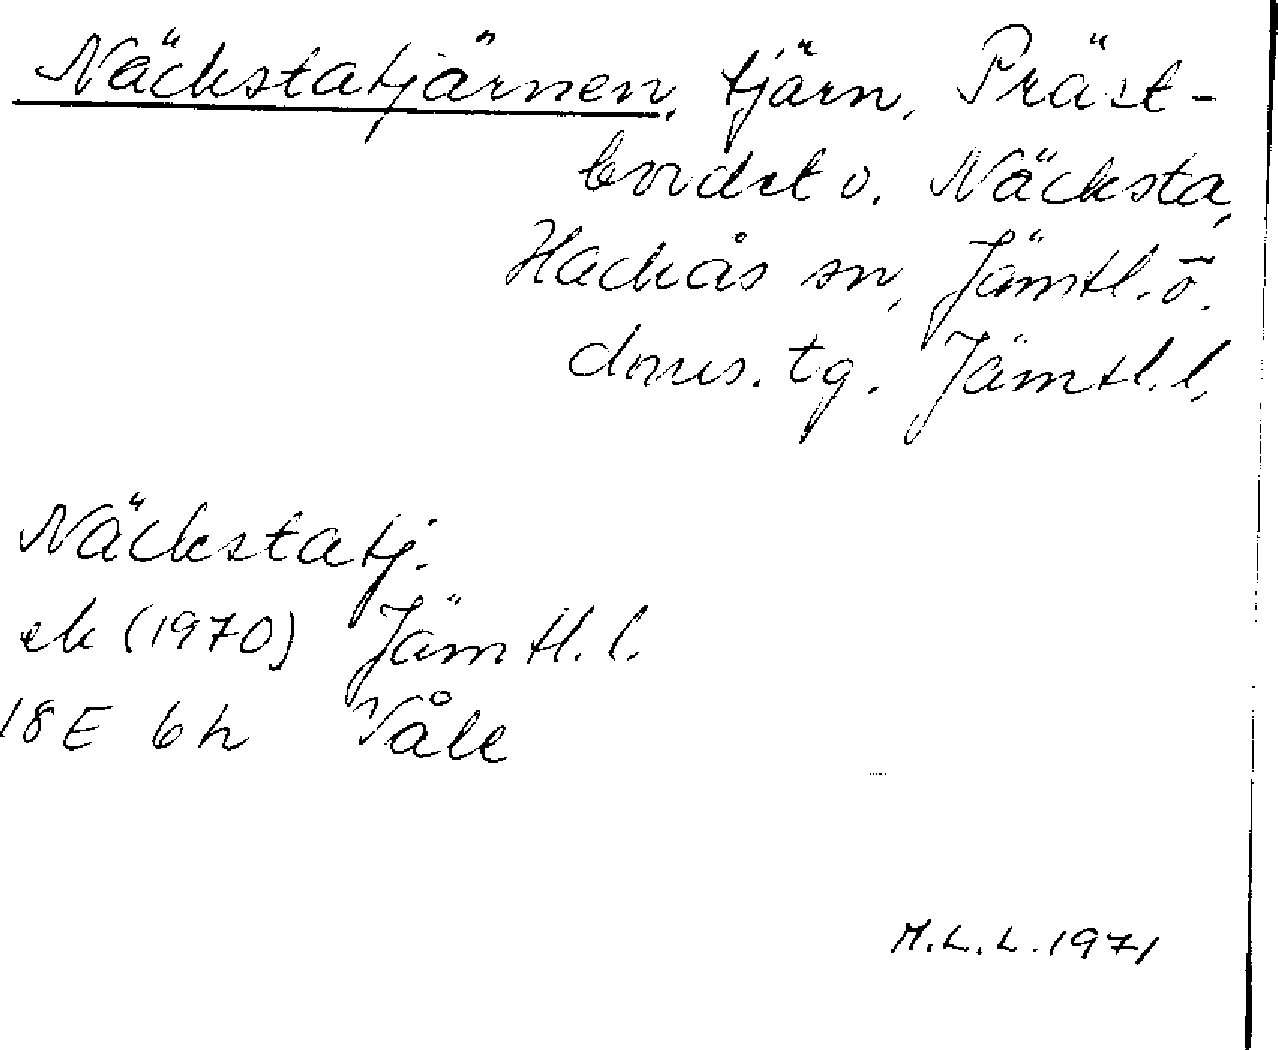 Näckstatjärnen, tjärn, Präst-
bordet o. Näcksta,
Hackås sn, Jämtl. ö.
doms. tg. Jämtl. l.
Näckstatj.
ek (1970) Jämtl. l.
18 E 6 h Våle
M.L.L. 1971